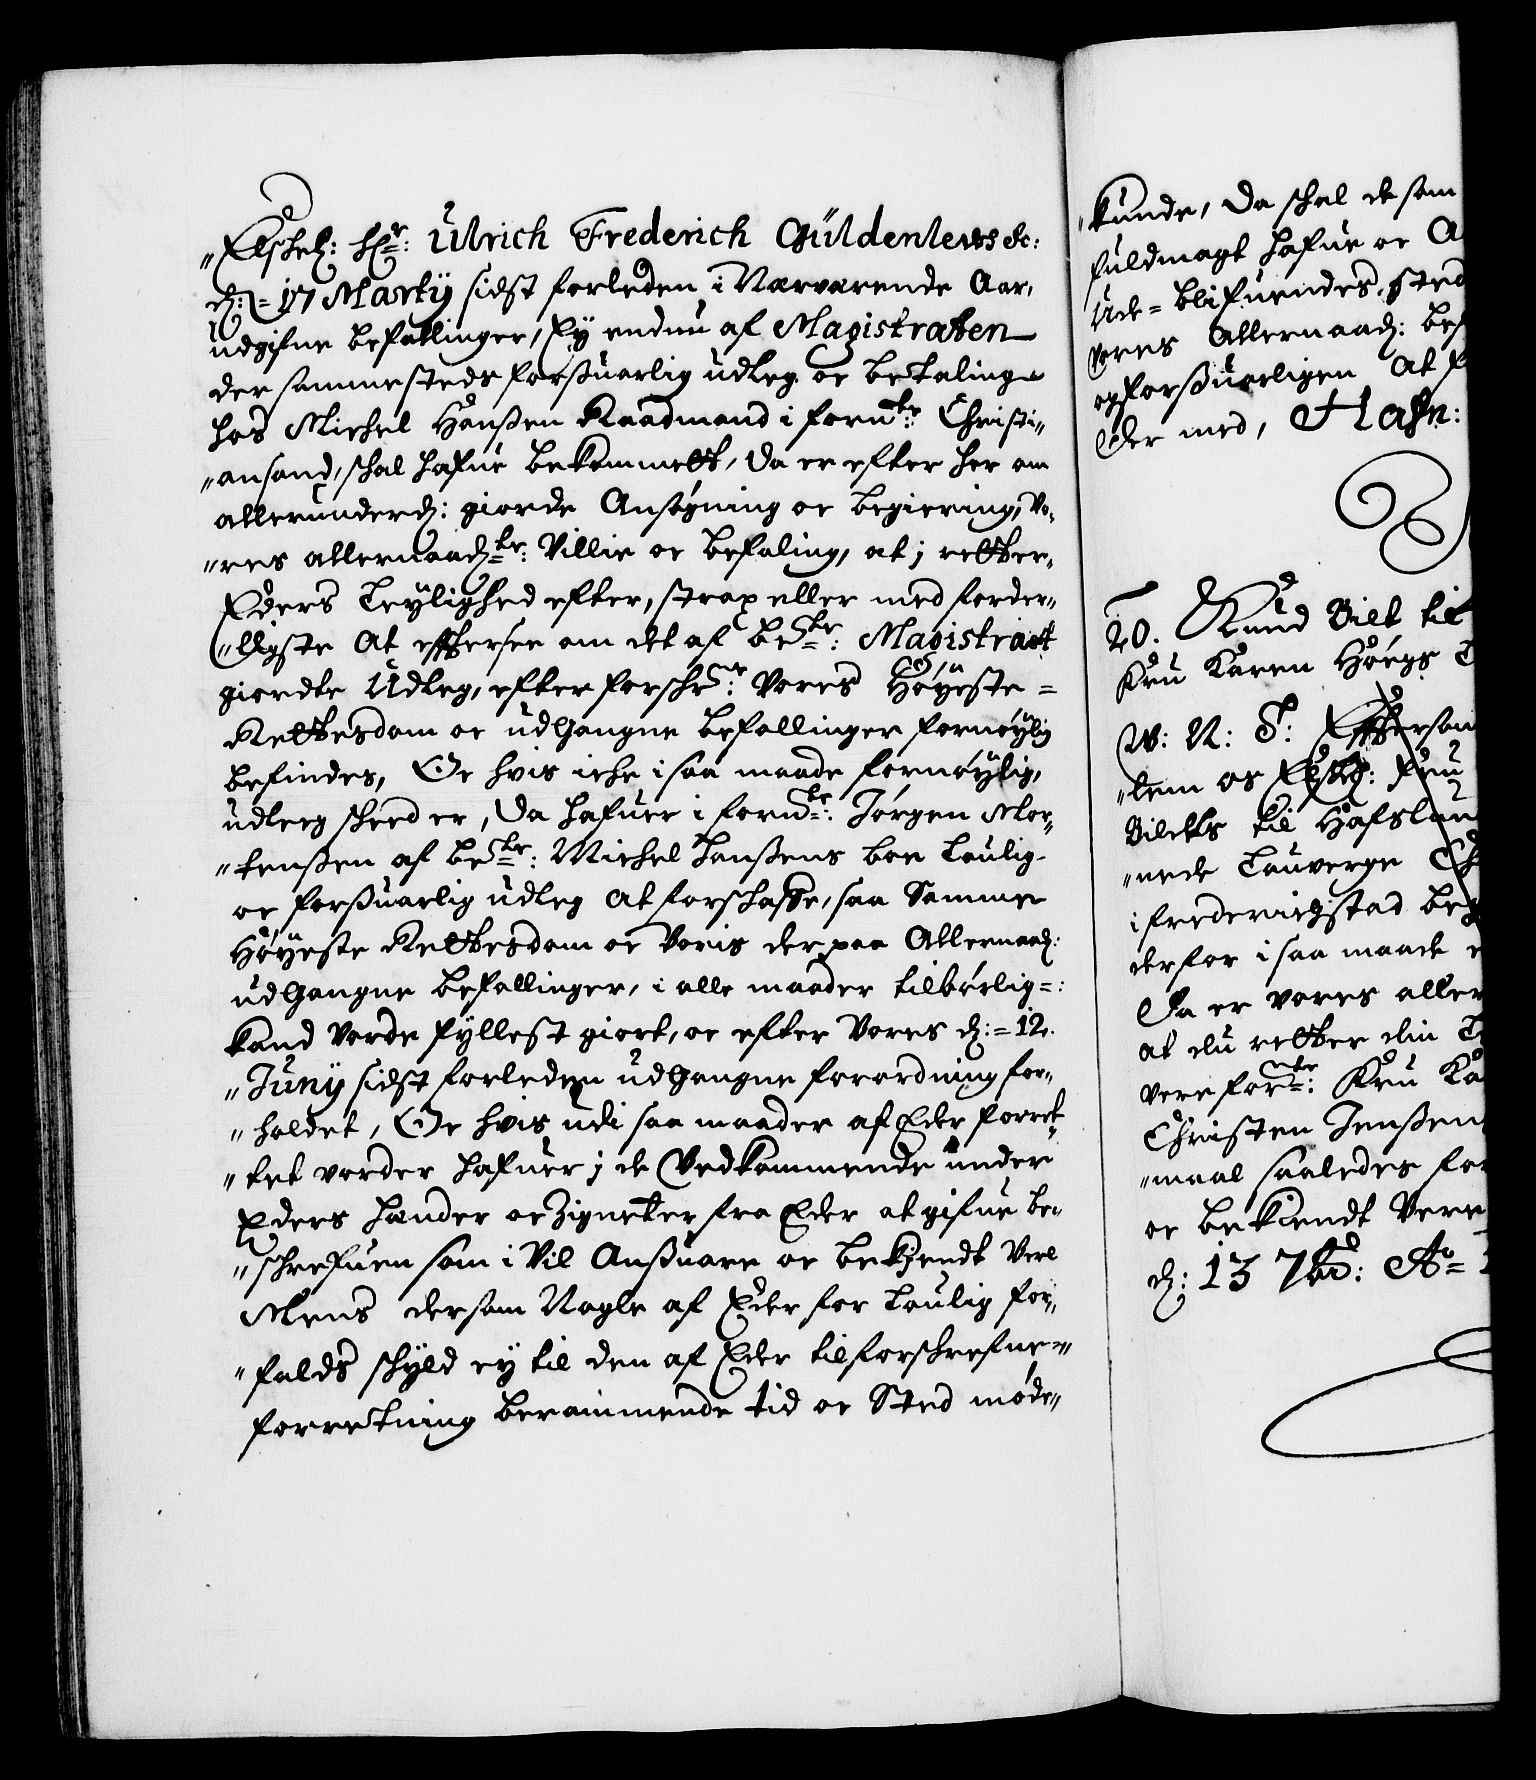 "Elskel: Hr: Ulrich Frederich Güldenlewes etc:
d: 17 Martij sidst forleden i Nærværende Aar,
udgifne befallinger, Ey endnu af Magistraten
der sammesteds forsuarlig udleg oc betaling
hos Michel Hanßen Raadmand i fornte: Christi"
"ansand, skal hafue bekommett, da er efter her om
allerunderd: giorde Ansøgning oc begiering, Vo"
"res allernaadte: Villie oc befaling, at j retter
Eders Leylighed efter, strax eller med forder"
"ligste at eftersee om det af bete: Magistrat
giordte Udleg, efter forschrne: Vores Høyeste=
Rettesdom oc udgangne befallinger fornøylig
befindes, Oc hvis iche i saa maade fornøylig,
udleg skeed er, Da hafuer i fornte: Jørgen Mor"
"tenßen af bete: Michel Hanßens boe Laulig
oc forsuarlig udleg at forschaffe, saa Samme
Høyeste Rettesdom oc Voris der paa Allernaad:
udgangne befallinger, i alle maader tilbørlig=:
kand vorde fyllest giort, oc efter Vores d: = 12.
"Junij sidst forleden udgangne forordning for"
"holdet, Oc hvis udi saa maader af Eder forret"
"tet vorder hafuer j de Vedkommende under
Eders hænder oc Zigneter fra Eder at gifue be"
"schrefuen som i Vil Ansuare oc bekiendt Vere
Mens dersom Nogle af Eder for Laulig for"
"falds skyld ey til den af Eder til forschrefne="
forretning berammende tid oc Sted møde"
"kunde, da skal de som
fuldmagt hafue oc
Ude=blifuendes sted
vores Allernaad:
og forsuarligen at
der med, Hafn:
20. Knud Bilt til
Fru Karen Høegs
W: N: G: Eftersom
"lem os Elskel: Fru
Bildts til Hafslun
"nede Lauverge
i frederichstad beg
derfor i saa maade
Da er vores aller
at du retter din
vere fornte: Fru Ka
Christen Jenßen
"maal saaledes for
oc bekiendt Vere
d: 13 7br: Ao